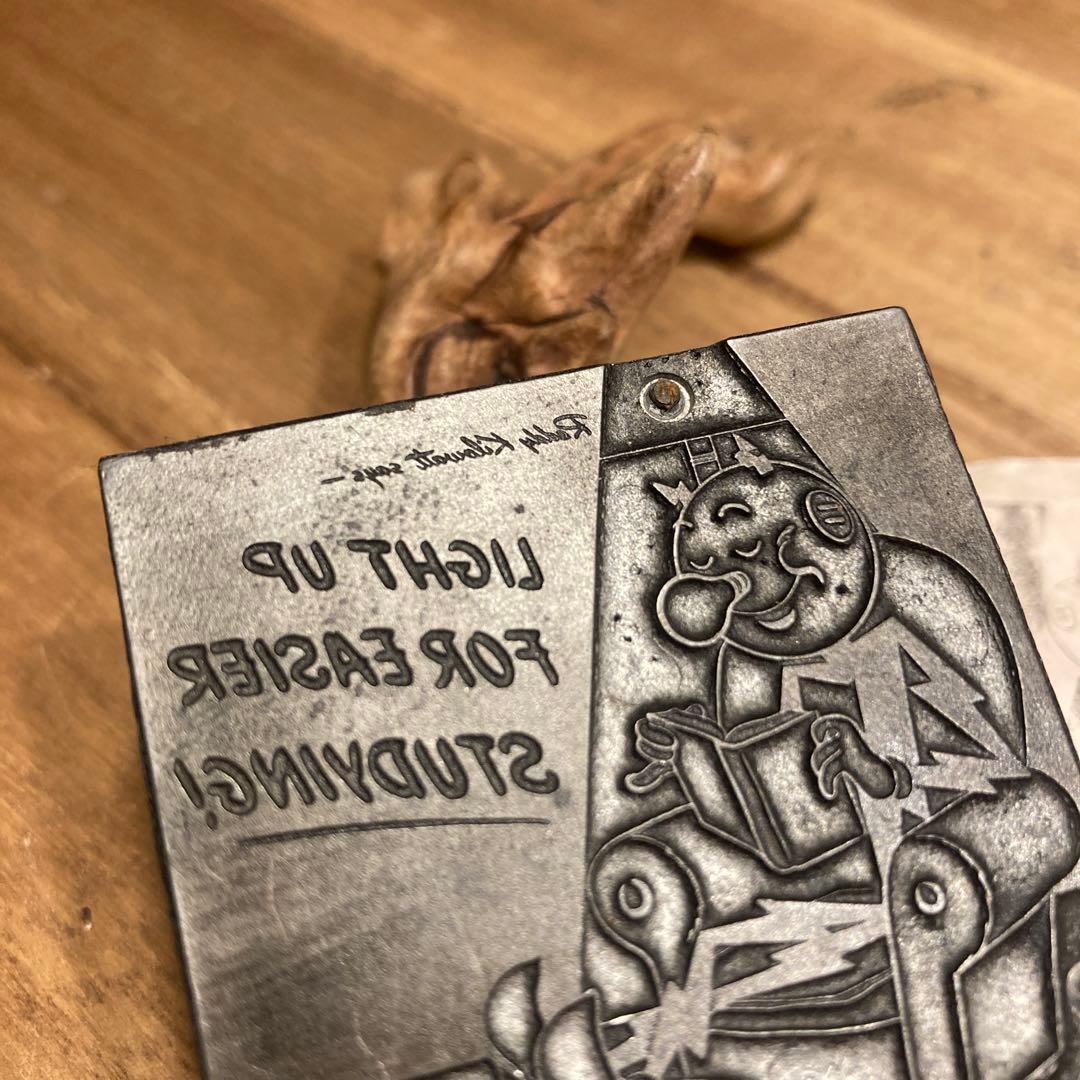 Reddy Kilowatt says –
LIGHT UP
FOR EASIER
STUDYING!